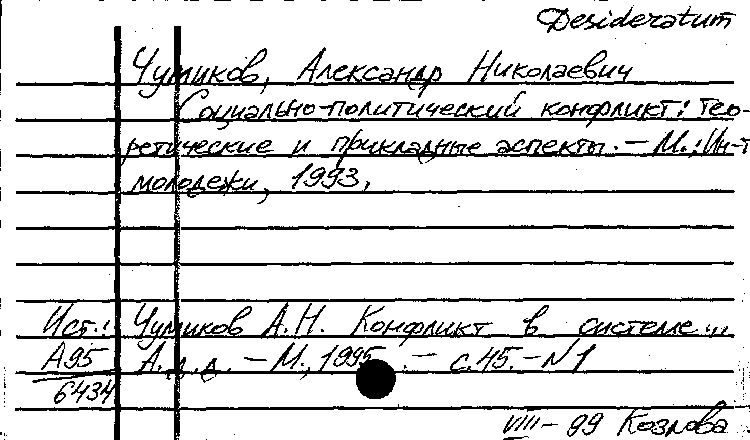 Desideratum
Чумиков, Александр Николаевич
Социально-политический конфликт: тео-
ретические и прикладные аспекты. – М.: Ин-т
молодежи, 1993.
Ист.: Чумиков А.Н. Конфликт в системе...
А95 А.р.д. – М., 1995. – с.45. – N1
6434
VIII – 99 Козлова